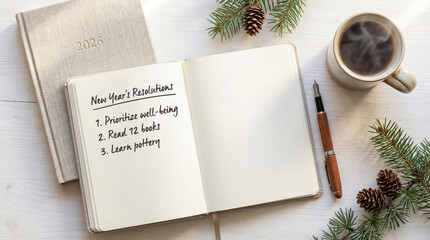 2026
New Year's Resolutions
1. Prioritize well-being
2. Read 12 books
3. Learn pottery